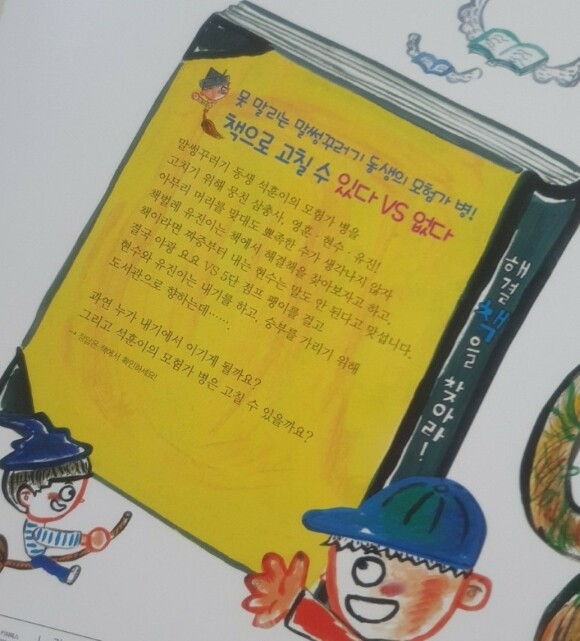 못 말리는 말썽꾸러기 동생의 모험가 병!
책으로 고칠 수 있다 VS 없다
말썽꾸러기 동생 석훈이의 모험가 병을
고치기 위해 뭉친 삼총사, 영훈 · 현수 · 유진!
아무리 머리를 맞대도 뾰족한 수가 생각나지 않자
책벌레 유진이는 책에서 해결책을 찾아보자고 하고,
책이라면 짜증부터 내는 현수는 말도 안 된다고 맞섭니다.
결국 야광 요요 VS 5단 점프 팽이를 걸고
현수와 유진이는 내기를 하고, 승부를 가리기 위해
도서관으로 향하는데……
과연 누가 내기에서 이기게 될까요?
그리고 석훈이의 모험가 병은 고칠 수 있을까요?
→ 정답은 책에서 확인하세요!
해결책을 찾아라!